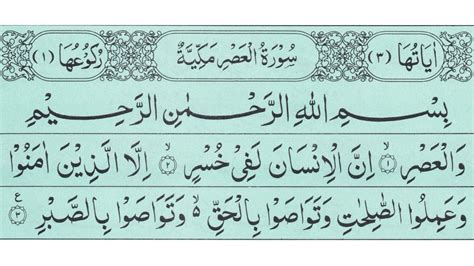 اٰيَاتُهَا (٣) سُوْرَةُ الْعَصْرِ مَكِّيَّةٌ رُكُوْعُهَا (١)
بِسْمِ اللّٰهِ الرَّحْمٰنِ الرَّحِيْمِ
وَالْعَصْرِ ۙ ١ اِنَّ الْاِنْسَانَ لَفِيْ خُسْرٍ ۙ ٢ اِلَّا الَّذِيْنَ اٰمَنُوْا
وَعَمِلُوا الصّٰلِحٰتِ وَتَوَاصَوْا بِالْحَقِّ ۙ۬ وَتَوَاصَوْا بِالصَّبْرِ ٣ ع